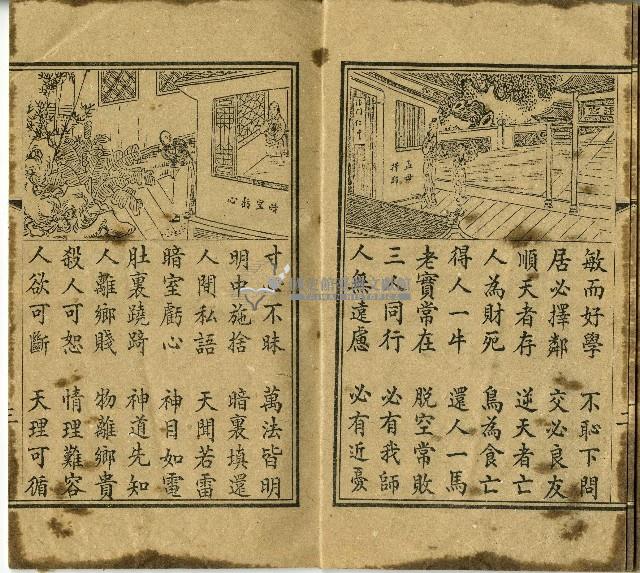 孟母擇鄰
敏而好學 不恥下問
居必擇鄰 交必良友
順天者存 逆天者亡
人為財死 鳥為食亡
得人一牛 還人一馬
老實常在 脫空常敗
三人同行 必有我師
人無遠慮 必有近憂
暗室虧心
寸心不昧 萬法皆明
明中施捨 暗裏填還
人間私語 天聞若雷
暗室虧心 神目如電
肚裏蹺蹊 神道先知
人離鄉賤 物離鄉貴
殺人可恕 情理難容
人欲可斷 天理可循
二
三